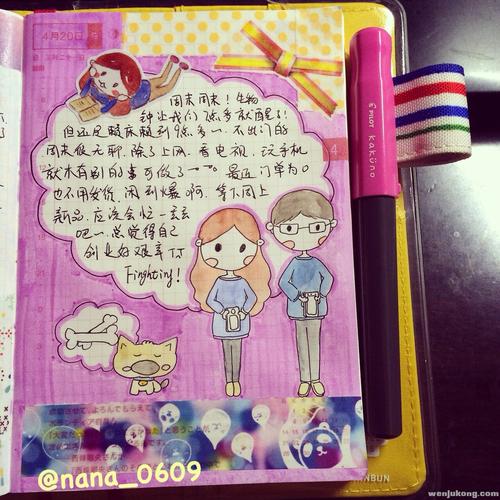 4月20日
周末周末！生物
钟让我们7点多就醒了！
但还是赖床赖到9点多一.不出门的
周末很无聊.除了上网.看电视.玩手机
就木有别的事可做了一一。最近订单为0
也不用发货.闲到爆啊.等下周上
新品.应该会忙一去去
吧一.总觉得自己
创业好艰辛TT
Fingting!
4
PILOT kakūno
成功させて、よろんでもらえて、
@nana_0609
wenjukong.com